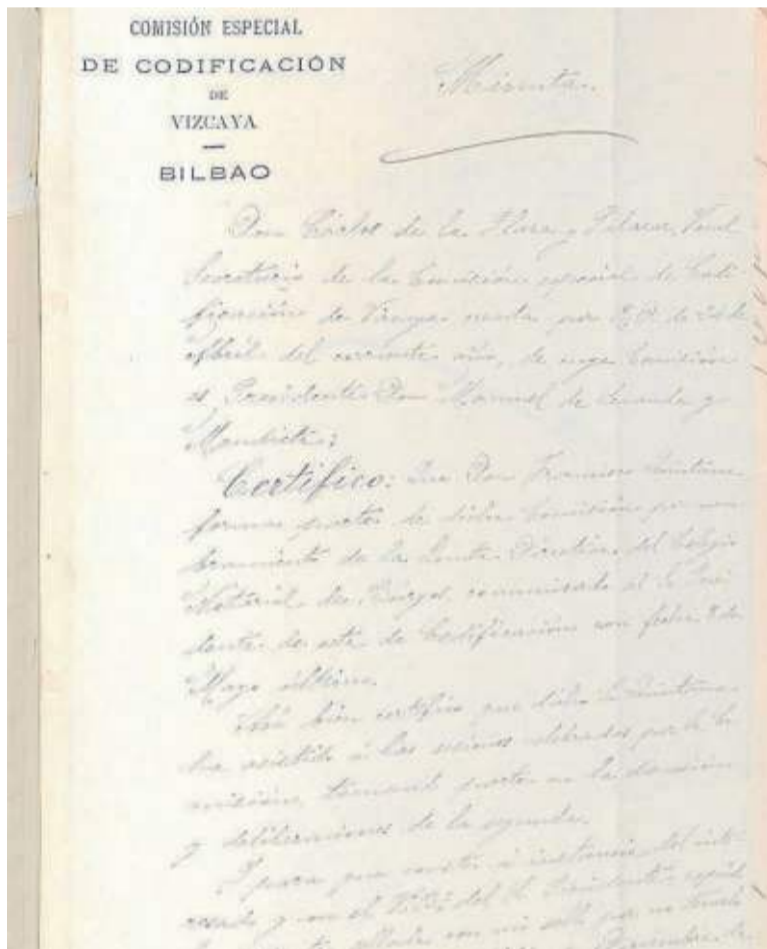 COMISIÓN ESPECIAL
DE CODIFICACIÓN
DE
VIZCAYA
BILBAO
Minuta.
Don Carlos de la Plaza y Salazar, Vocal
Secretario de la Comisión especial de Codi
ficación de Vizcaya por R.O. de 24 de
Abril del corriente año, de cuya Comisión
es Presidente Don Manuel de Lecanda y
Mendieta;
Certifico: Que Don Francisco Quintana
forma parte de dicha Comisión por nom
bramiento de la Junta Directiva del Colegio
Notarial de Burgos, comunicado al Sr. Presi
dente de esta de Codificación con fecha 8 de
Mayo último.
bien certifico que dicho Sr. Quintana
ha asistido á las sesiones celebradas por la Co
misión, tomando parte en la discusión
y deliberaciones de la segunda.
Y para que conste á instancia del inte
resado y con el VºBº del Sr. Presidente expido
con mi sello por no